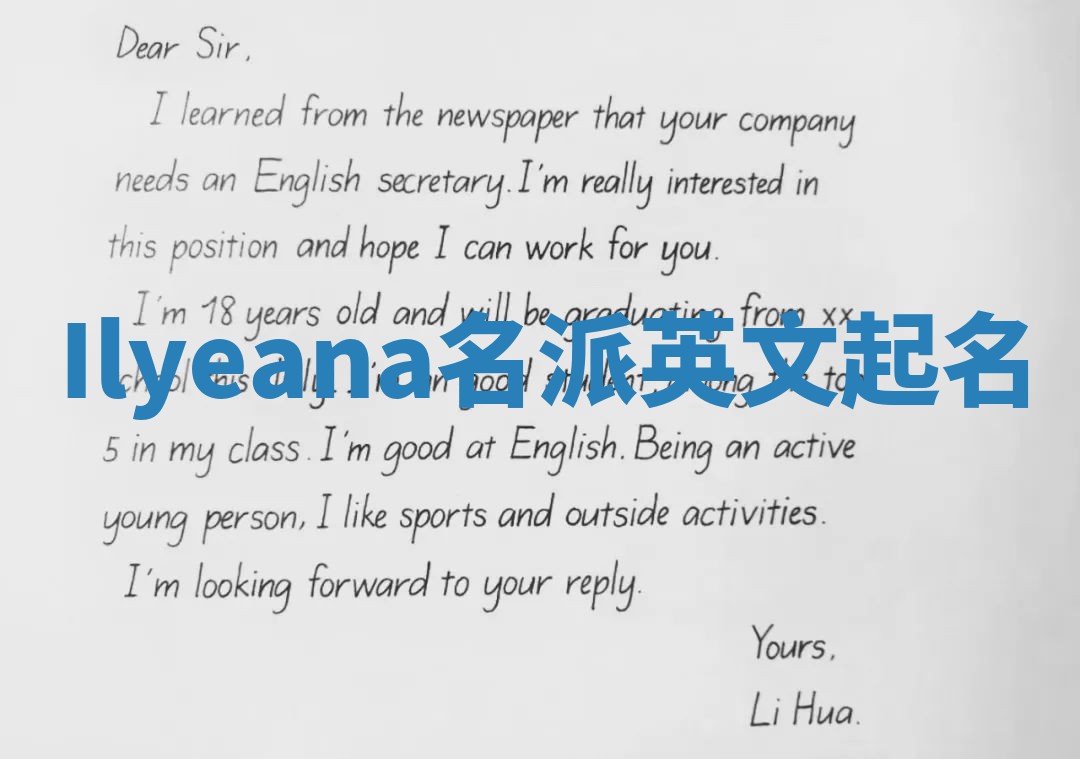 Dear Sir,
I learned from the newspaper that your company
needs an English secretary. I'm really interested in
this position and hope I can work for you.
I'm 18 years old and will be graduating from xx
Ilyeana名派英文起名
school this July. I'm an good student among the top
5 in my class. I'm good at English. Being an active
young person, I like sports and outside activities.
I'm looking forward to your reply.
Yours,
Li Hua.